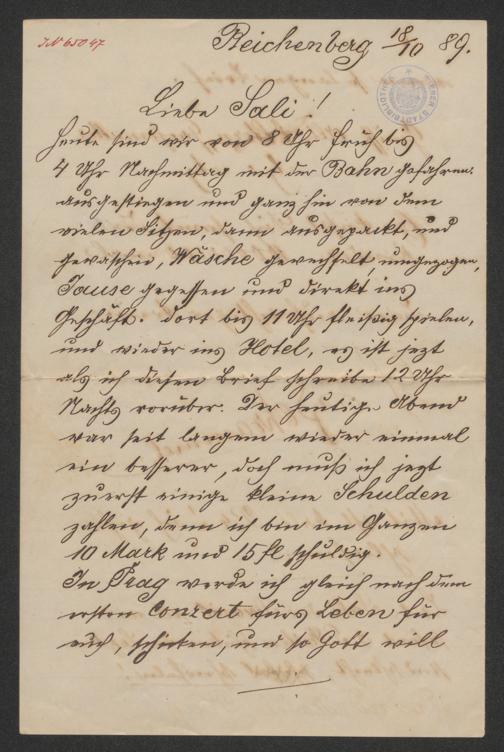 J.N. 65047
Reichenberg 18/10 89.
Liebe Sali!
Heute sind wir von 8 Uhr früh bis
4 Uhr Nachmittag mit der Bahn gefahren,
ausgestiegen und ganz hin von dem
vielen Sitzen, dann ausgepackt, und
gewaschen, Wäsche gewechselt, umgezogen,
Jause gegessen und direkt ins
Geschäft. dort bis 11 Uhr fleißig spielen,
und wieder ins Hotel, es ist jezt
als ich diesen Brief schreibe 12 Uhr
Nachts vorüber. Der heutige Abend
war seit langem wieder einmal
ein besserer, doch muß ich jezt
zuerst einige kleine Schulden
zahlen, denn ich bin im Ganzen
10 Mark und 15 fl schuldig.
In Prag werde ich gleich nach dem
ersten Conzert fürs Leben für
euch, schicken, und so Gott will